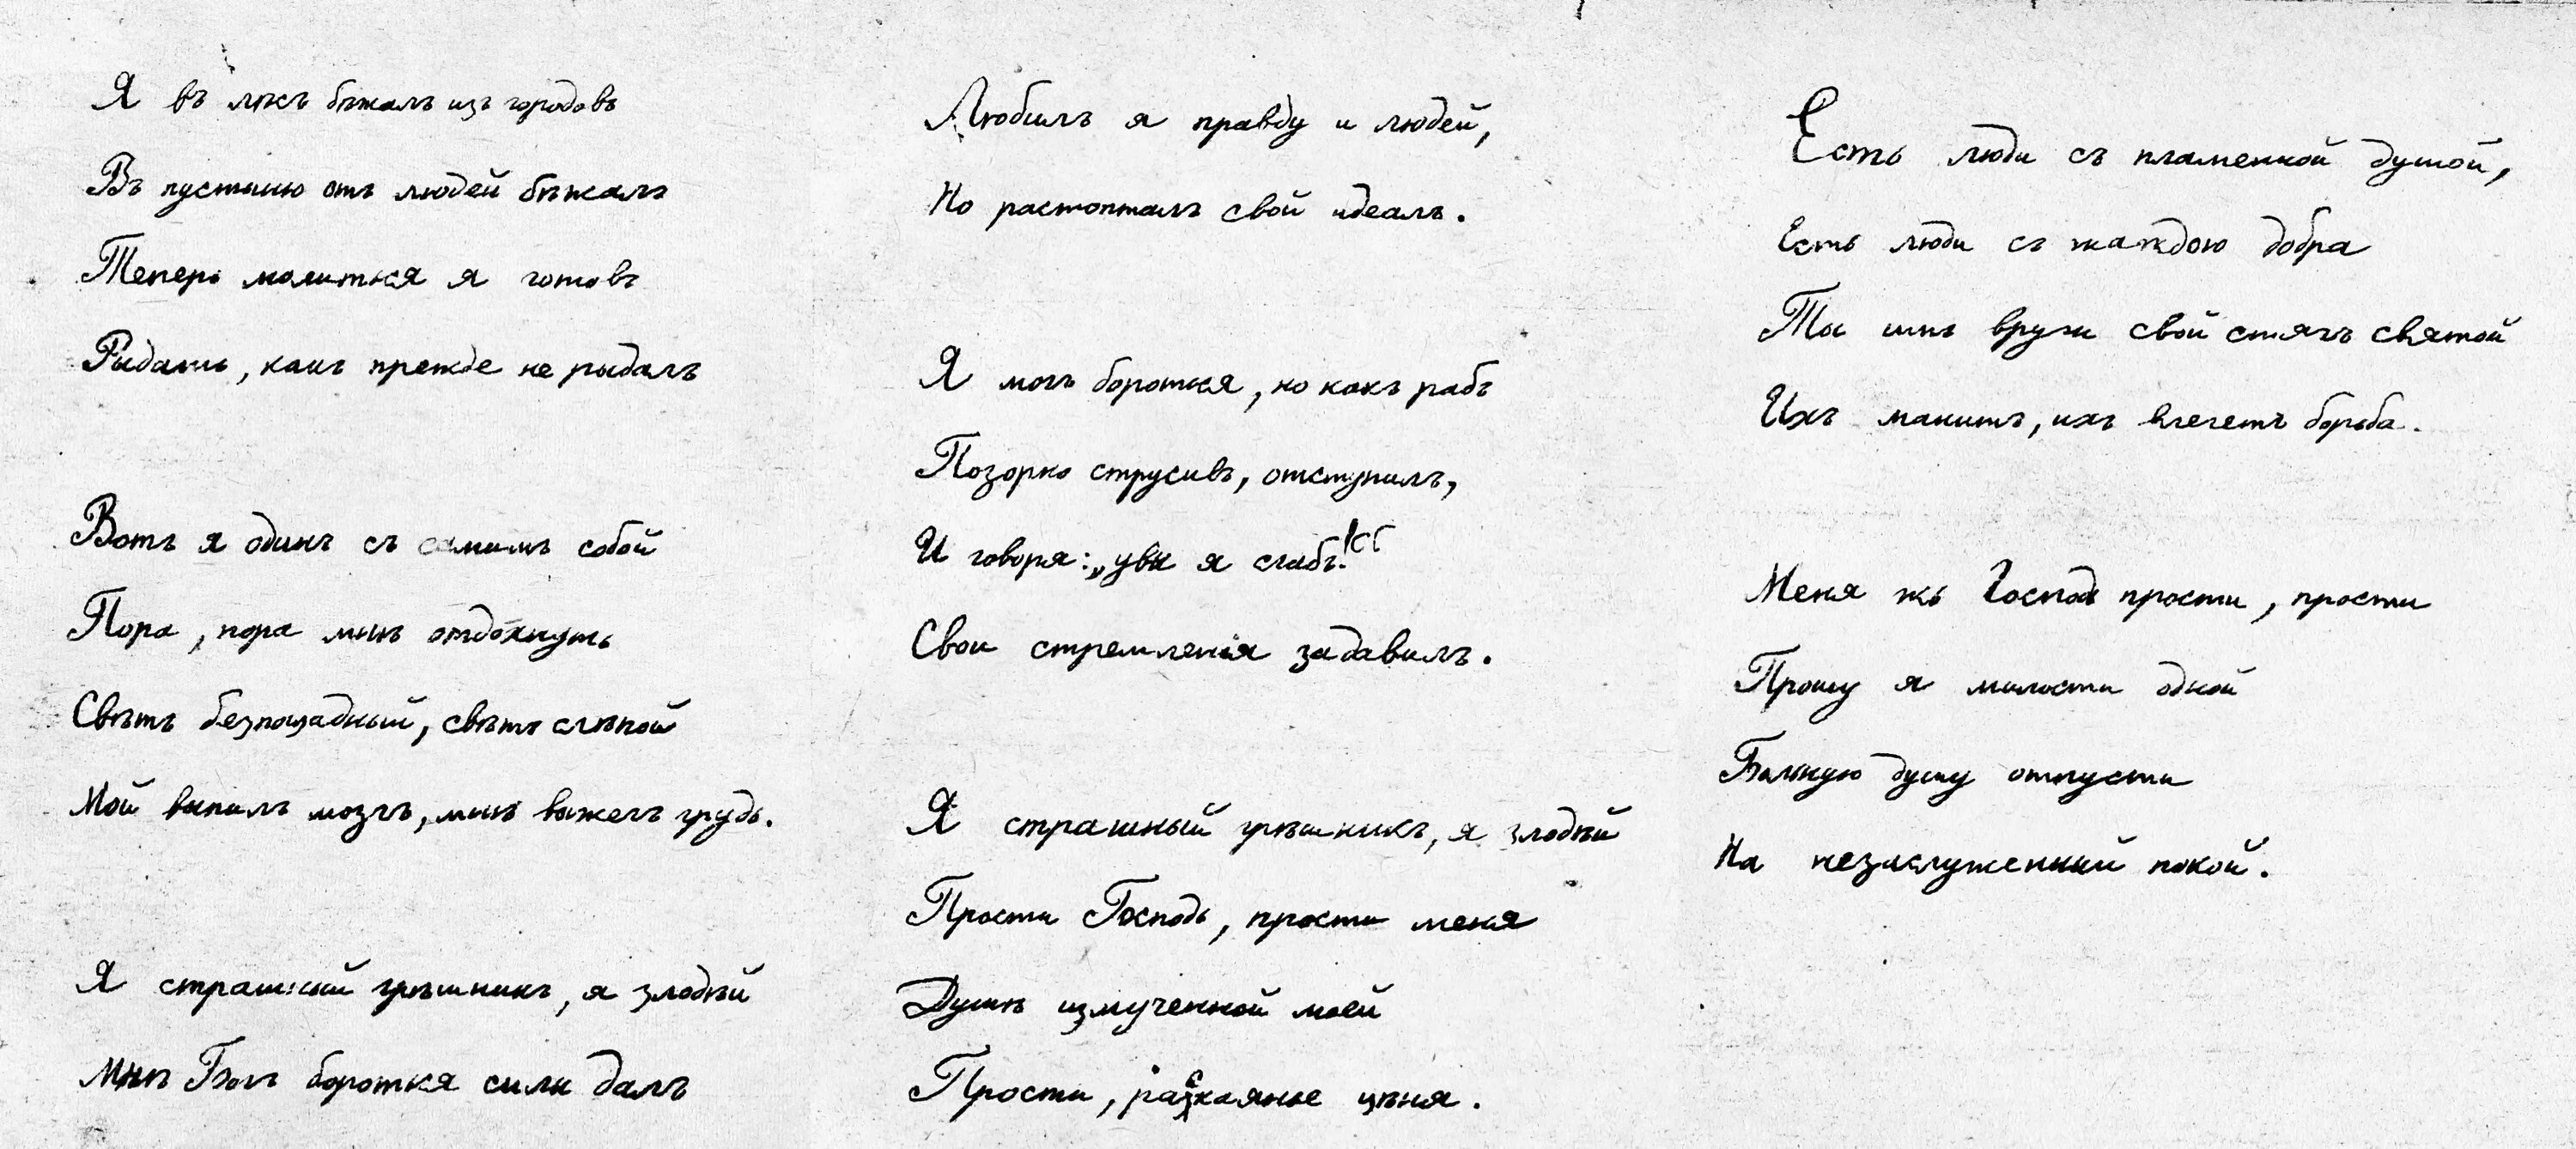 Я въ лѣсъ бѣжалъ изъ городовъ
Въ пустыню отъ людей бѣжалъ
Теперь молиться я готовъ
Рыдать, какъ прежде не рыдалъ
Вотъ я одинъ съ самимъ собой
Пора, пора мнѣ отдохнуть
Свѣтъ безпощадный, свѣтъ слѣпой
Мой выпилъ мозгъ, мнѣ выжегъ грудь.
Я страшный грѣшникъ, я злодѣй
Мнѣ Богъ бороться силы далъ
Любилъ я правду и людей,
Но растопталъ свой идеалъ.
Я могъ бороться, но какъ рабъ
Позорно струсивъ, отступилъ,
И говоря: „увы я слабъ!“
Свои стремленія задавилъ.
Я страшный грѣшникъ, я злодѣй
Прости Господь, прости меня
Душѣ измученной моей
Прости, раскаянье цѣня.
Есть люди съ пламенной душой,
Есть люди съ жаждою добра
Ты имъ вручи свой стягъ святой
Ихъ манитъ, ихъ влечетъ борьба.
Меня жъ Господь прости, прости
Прошу я милости одной
Больную душу отпусти
На незаслуженный покой.